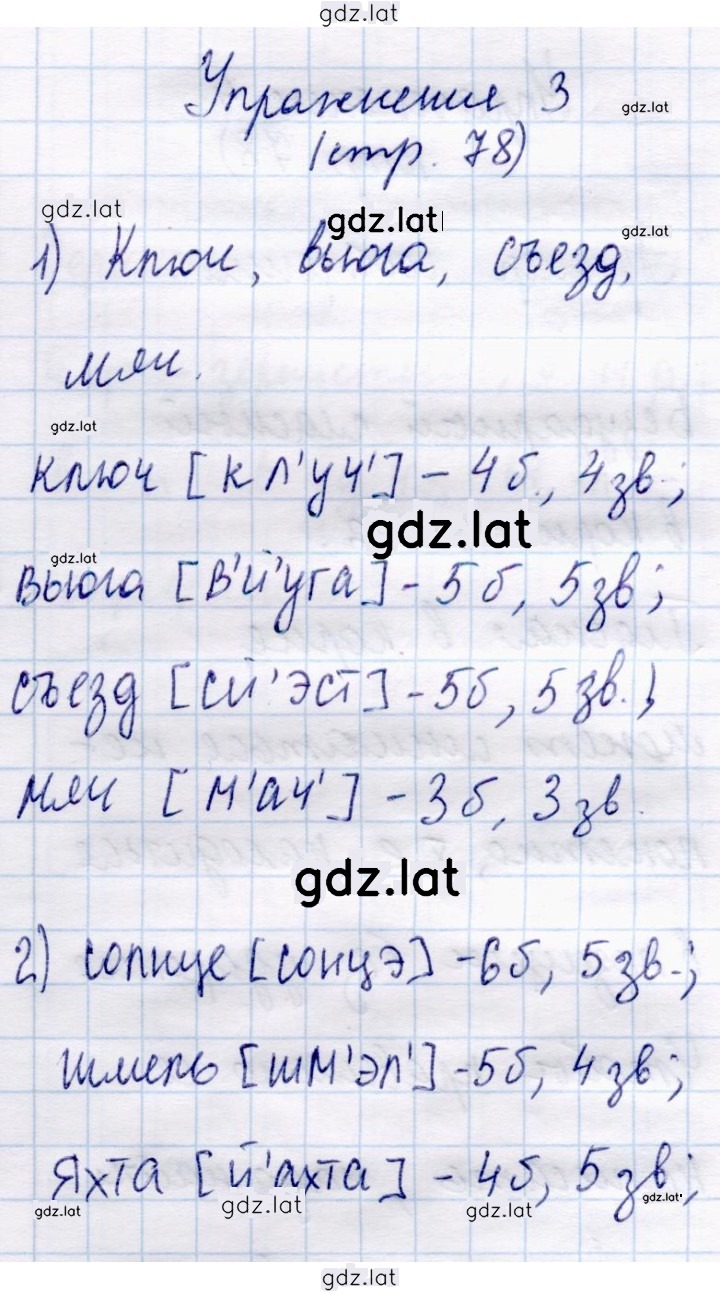 gdz.lat
Упражнение 3
gdz.lat
(стр. 78)
gdz.lat
gdz.lat
gdz.lat
1) Ключ, вьюга, съезд,
мяч.
gdz.lat
ключ [кл'уч'] – 4б., 4зв.;
gdz.lat
gdz.lat
вьюга [в'й'уга] - 5б, 5зв;
съезд [сй'эст] - 5б, 5зв.;
мяч [м'ач'] - 3б, 3зв.
gdz.lat
2) солнце [сонцэ] - 6б, 5зв.;
шмель [шм'эл'] - 5б, 4зв;
яхта [й'ахта] - 4б, 5зв;
gdz.lat
gdz.lat
gdz.lat
gdz.lat
gdz.lat